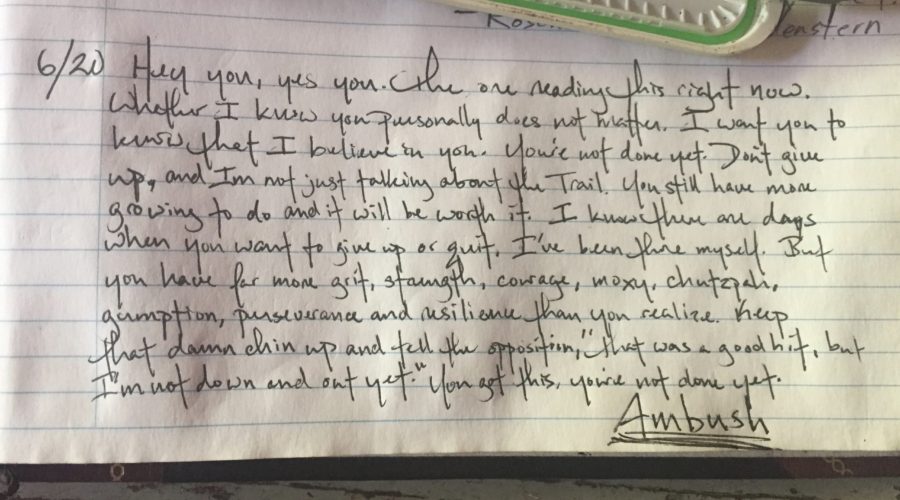 enstern
6/20 Hey you, yes you. The one reading this right now.
Whether I know you personally does not matter. I want you to
know that I believe in you. You're not done yet. Don't give
up, and I'm not just talking about the Trail. You still have more
growing to do and it will be worth it. I know there are days
when you want to give up or quit. I've been there myself. But
you have far more grit, strength, courage, moxy, chutzpah,
gumption, perseverance and resilience than you realize. Keep
that damn chin up and tell the opposition, "that was a good hit, but
I'm not down and out yet." You got this, you're not done yet.
Ambush